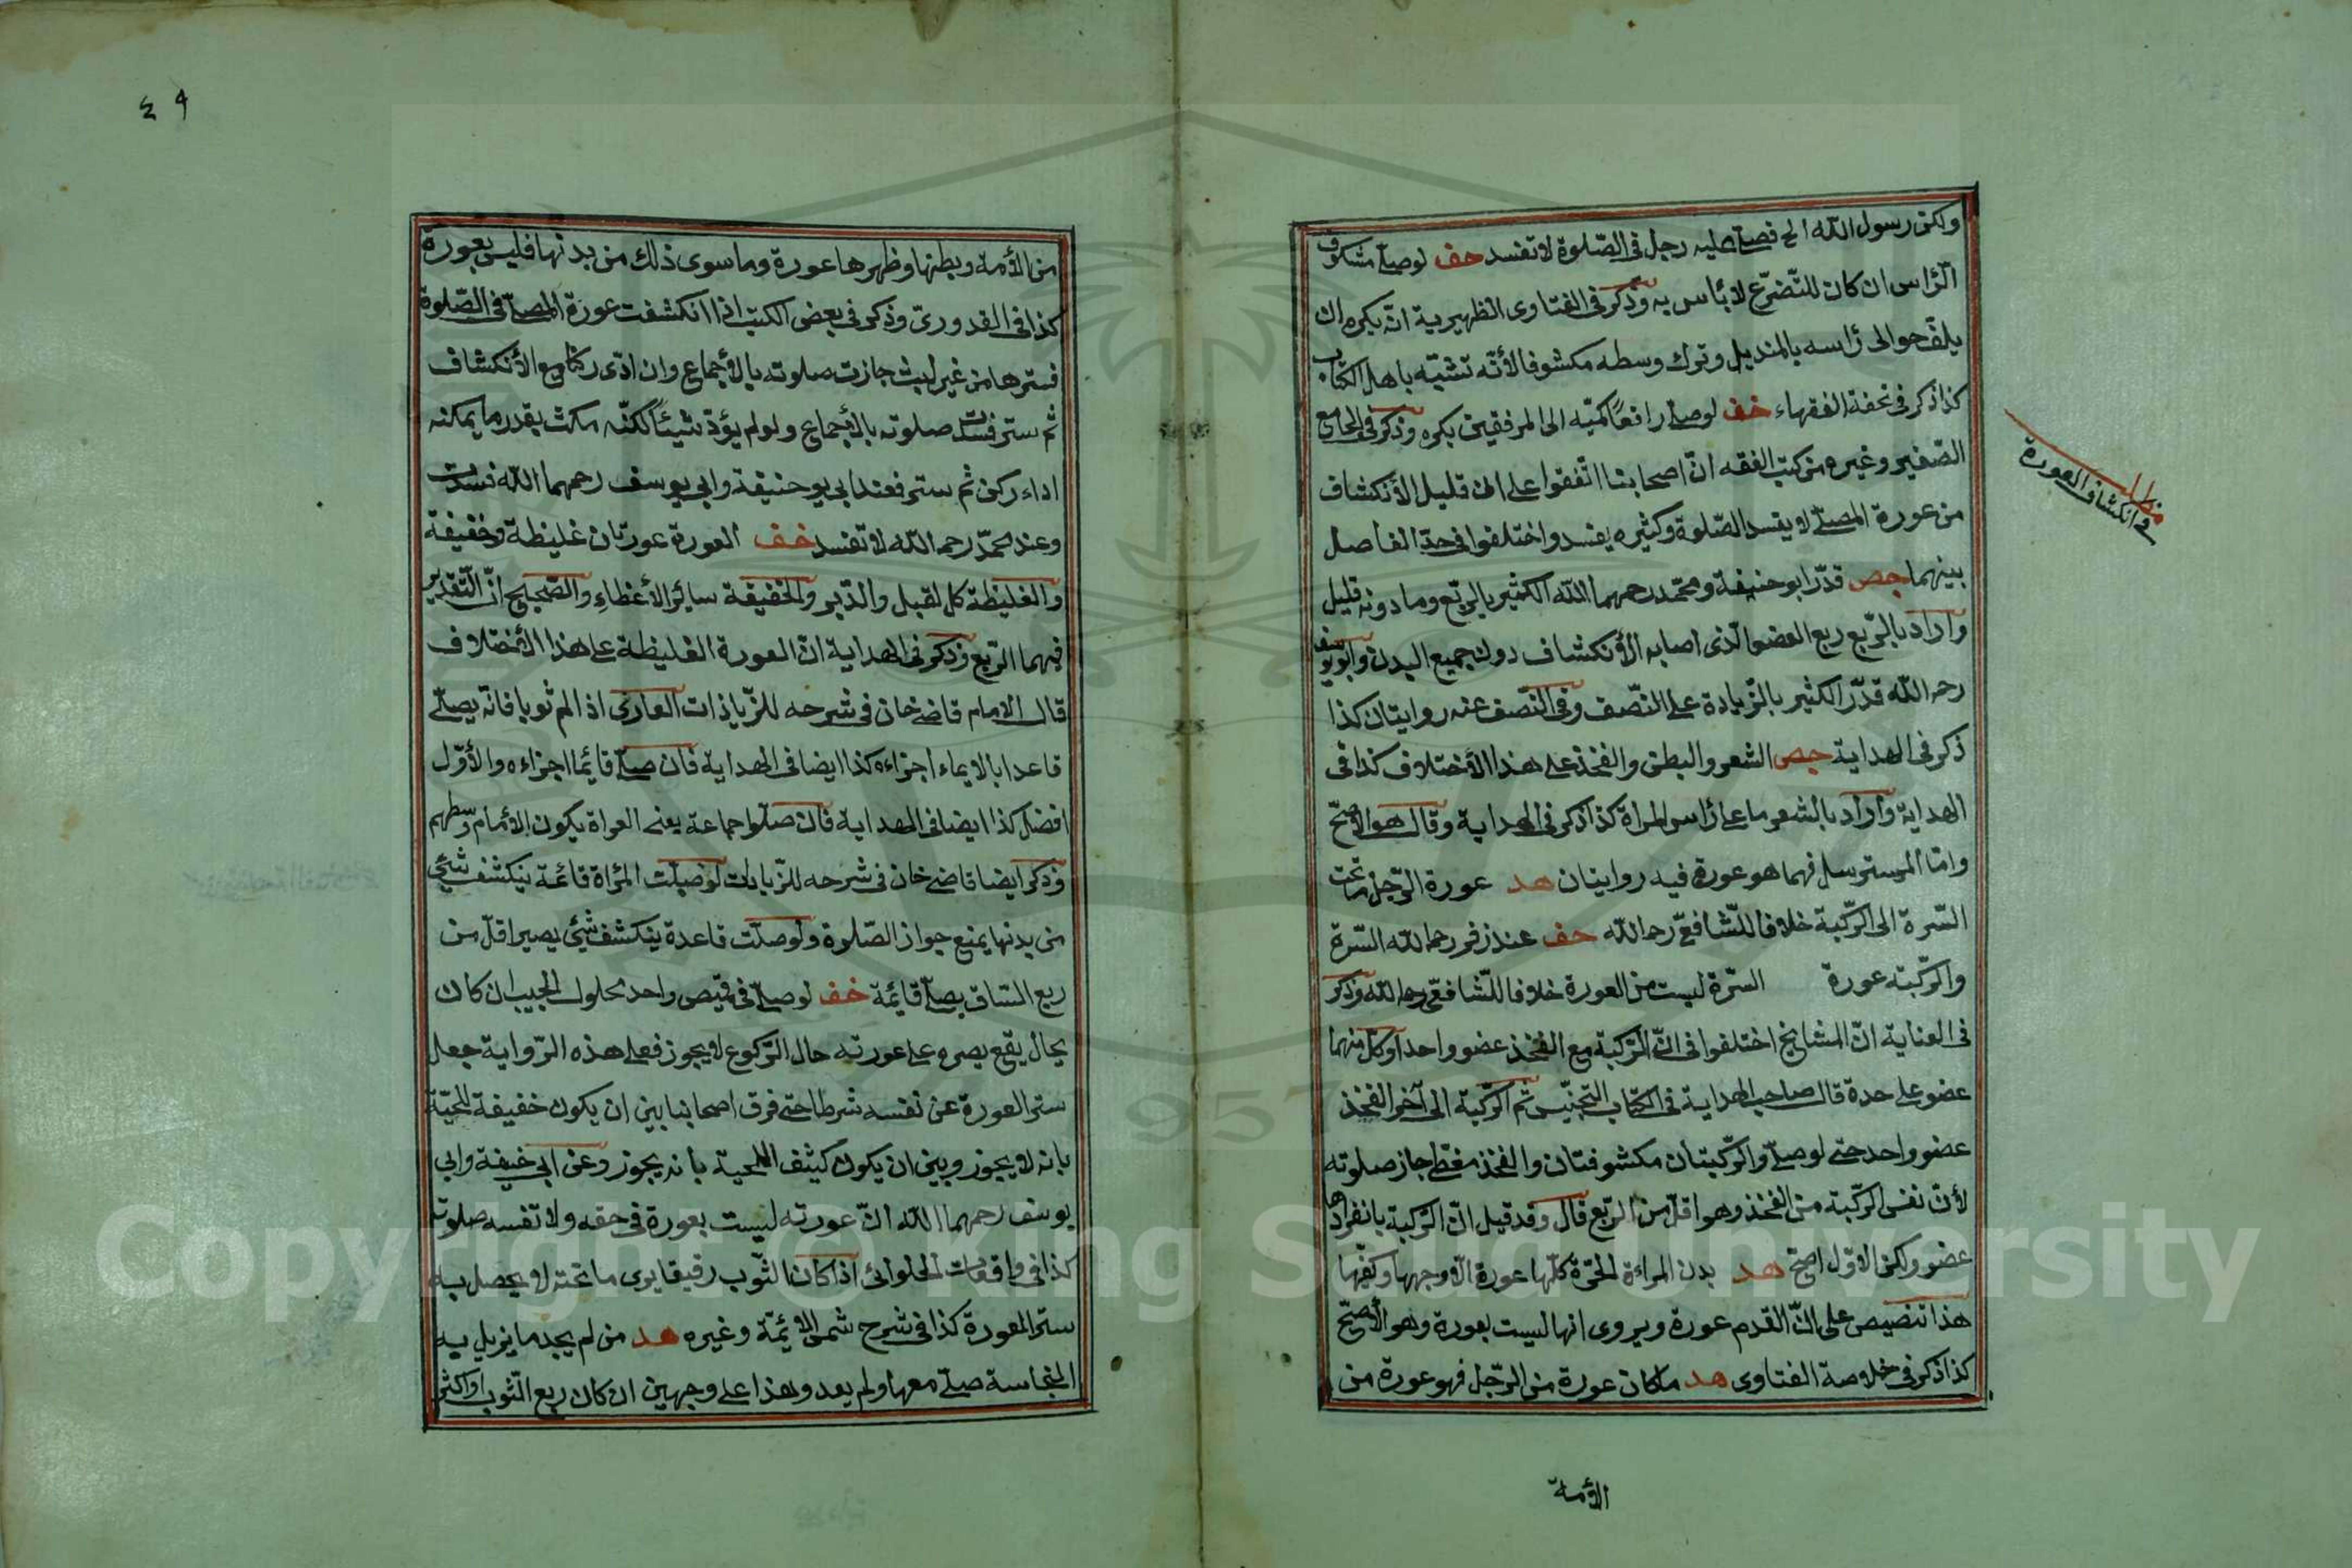 ولكن رسول الله الخ فصلى عليه رجل فى الصّلوة لا تفسد حف لو صلى مشكوف
الرّاس ان كان للتّضرّع لا بأس به وذكر فى الفتاوى الظهيرية انّه يكره ان
يلفّ حوالى رٔاسه بالمنديل وترك وسطه مكشوفا لأنّه تشبّه باهل الكتاب
كذا ذكر فى تحفة الفقهاء خف لو صلى رافعًا كمّيه الى المرفقين يكره وذكر فى الجامع
الصّغير وغيره من كتب الفقه انّ اصحابنا اتّفقوا على ان قليل الأنكشاف
من عورة المصلى لا يفسد الصّلوة وكثيره يفسد واختلفوا فى حدّ الفاصل
بينهما جص قدّر ابو حنيفة ومحمّد رحمهما الله الكثير بالرّبع وما دونه قليل
وأراد بالرّبع ربع العضو الّذى اصابه الأنكشاف دون جميع البدن وابو يوسف
رحمه الله قدّر الكثير بالزّيادة على النّصف وفى النّصف عنه روايتان كذا
ذكر فى الهداية جص الشعر والبطن والفخذ على هذا الأختلاف كذا فى
الهداية وأراد بالشعر ما على رٔاس المرأة كذا ذكر فى الهداية وقال هو الاصحّ
وامّا المسترسل فهما هو عورة فيه روايتان هد عورة الرّجل ما تحت
السّرة الى الرّكبة خلافا للشّافعىّ رحمه الله حف عند زفر رحمه الله السّرة
والرّكبة عورة السّرة ليست من العورة خلافا للشّافعىّ رحمه الله وذكر
فى العناية انّ المشايخ اختلفوا فى انّ الرّكبة مع الفخذ عضو واحد أو كلّ منهما
عضو على حدة قال صاحب الهداية فى كتاب التجنيس ثم الرّكبة الى آخر الفخذ
عضو واحد حتى لو صلى والرّكبتان مكشوفتان والفخذ مغطى جاز صلوته
لأنّ نفس الرّكبة من الفخذ وهو اقلّ من الرّبع قال وقد قيل انّ الرّكبة بانفرادها
عضو ولكن الاوّل اصحّ هد بدن المراءة الحرّة كلّها عورة الّا وجهها وكفّيها
هذا تنصيص على انّ القدم عورة ويروى انها ليست بعورة وهو الأصحّ
كذا ذكر فى خلاصة الفتاوى هد ما كان عورة من الرّجل فهو عورة من
الأمة
مطلب
فى انكشاف العورة
٤٩
من الأمة وبطنها وظهرها عورة وما سوى ذلك من بدنها فليس بعورة
كذا فى القدورىّ وذكر فى بعض الكتب اذا انكشفت عورة المصلى فى الصّلوة
فسترها من غير لبث جازت صلوته بالأجماع وان ادّى ركنا مع الأنكشاف
ثم ستر فسدت صلوته بالأجماع ولو لم يؤدّ شيئًا لكنّه مكث بقدر ما يمكنه
اداء ركن ثم ستر فعند ابى حنيفة وابى يوسف رحمهما الله فسدت
وعند محمدّ رحمه الله لا تفسد خف العورة عورتان غليظة وخفيفة
والغليظة كل لقبل والدّبر والخفيفة سائر الأعظاء والصّحيح انّ التّقدير
فيهما الرّبع وذكر فى الهداية انّ العورة الغليظة على هذا الأختلاف
قال الامام قاضى خان فى شرحه للزّيادات العارى اذا لم ثوبا فانّه يصلّى
قاعدا بالايماء اجزاءه كذا ايضا فى الهداية فان صلى قائما اجزاءه والأوّل
افضل كذا ايضا فى الهداية فان صلّوا جماعة يعنى العراة يكون الأمام وسطهم
وذكر ايضا قاضى خان فى شرحه للزّيادات لو صلّت المرأة قائمة ينكشف شئ
من بدنها يمنع جواز الصّلوة ولو صلّت قاعدة ينكشف شئ يصير اقلّ من
ربع السّاق يصلّى قائمة خف لو صلّى فى قميص واحد محلول الجيب ان كان
بحال يقع بصره على عورته حال الرّكوع لا يجوز فعلى هذه الرّواية جعل
ستر العورة عن نفسه شرطا حتى فرق اصحابنا بين ان يكون خفيفة اللحيّة
بانه لا يجوز وبين ان يكون كثيف اللحية بانه يجوز وعن ابى حنيفة وابى
يوسف رحمهما الله انّ عورته ليست بعورة فى حقه ولا تفسه صلوته
كذا فى واقعات الحلوائى اذا كان الثّوب رقيقا يرى ما تحته لا يحصل به
ستر العورة كذا فى شرح شمس الائمّة وغيره هد من لم يجد ما يزيل به
النجاسة صلّى معها ولم يعد وهذا على وجهين ان كان ربع الثّوب او اكثر
Copyright © King Saud University
957